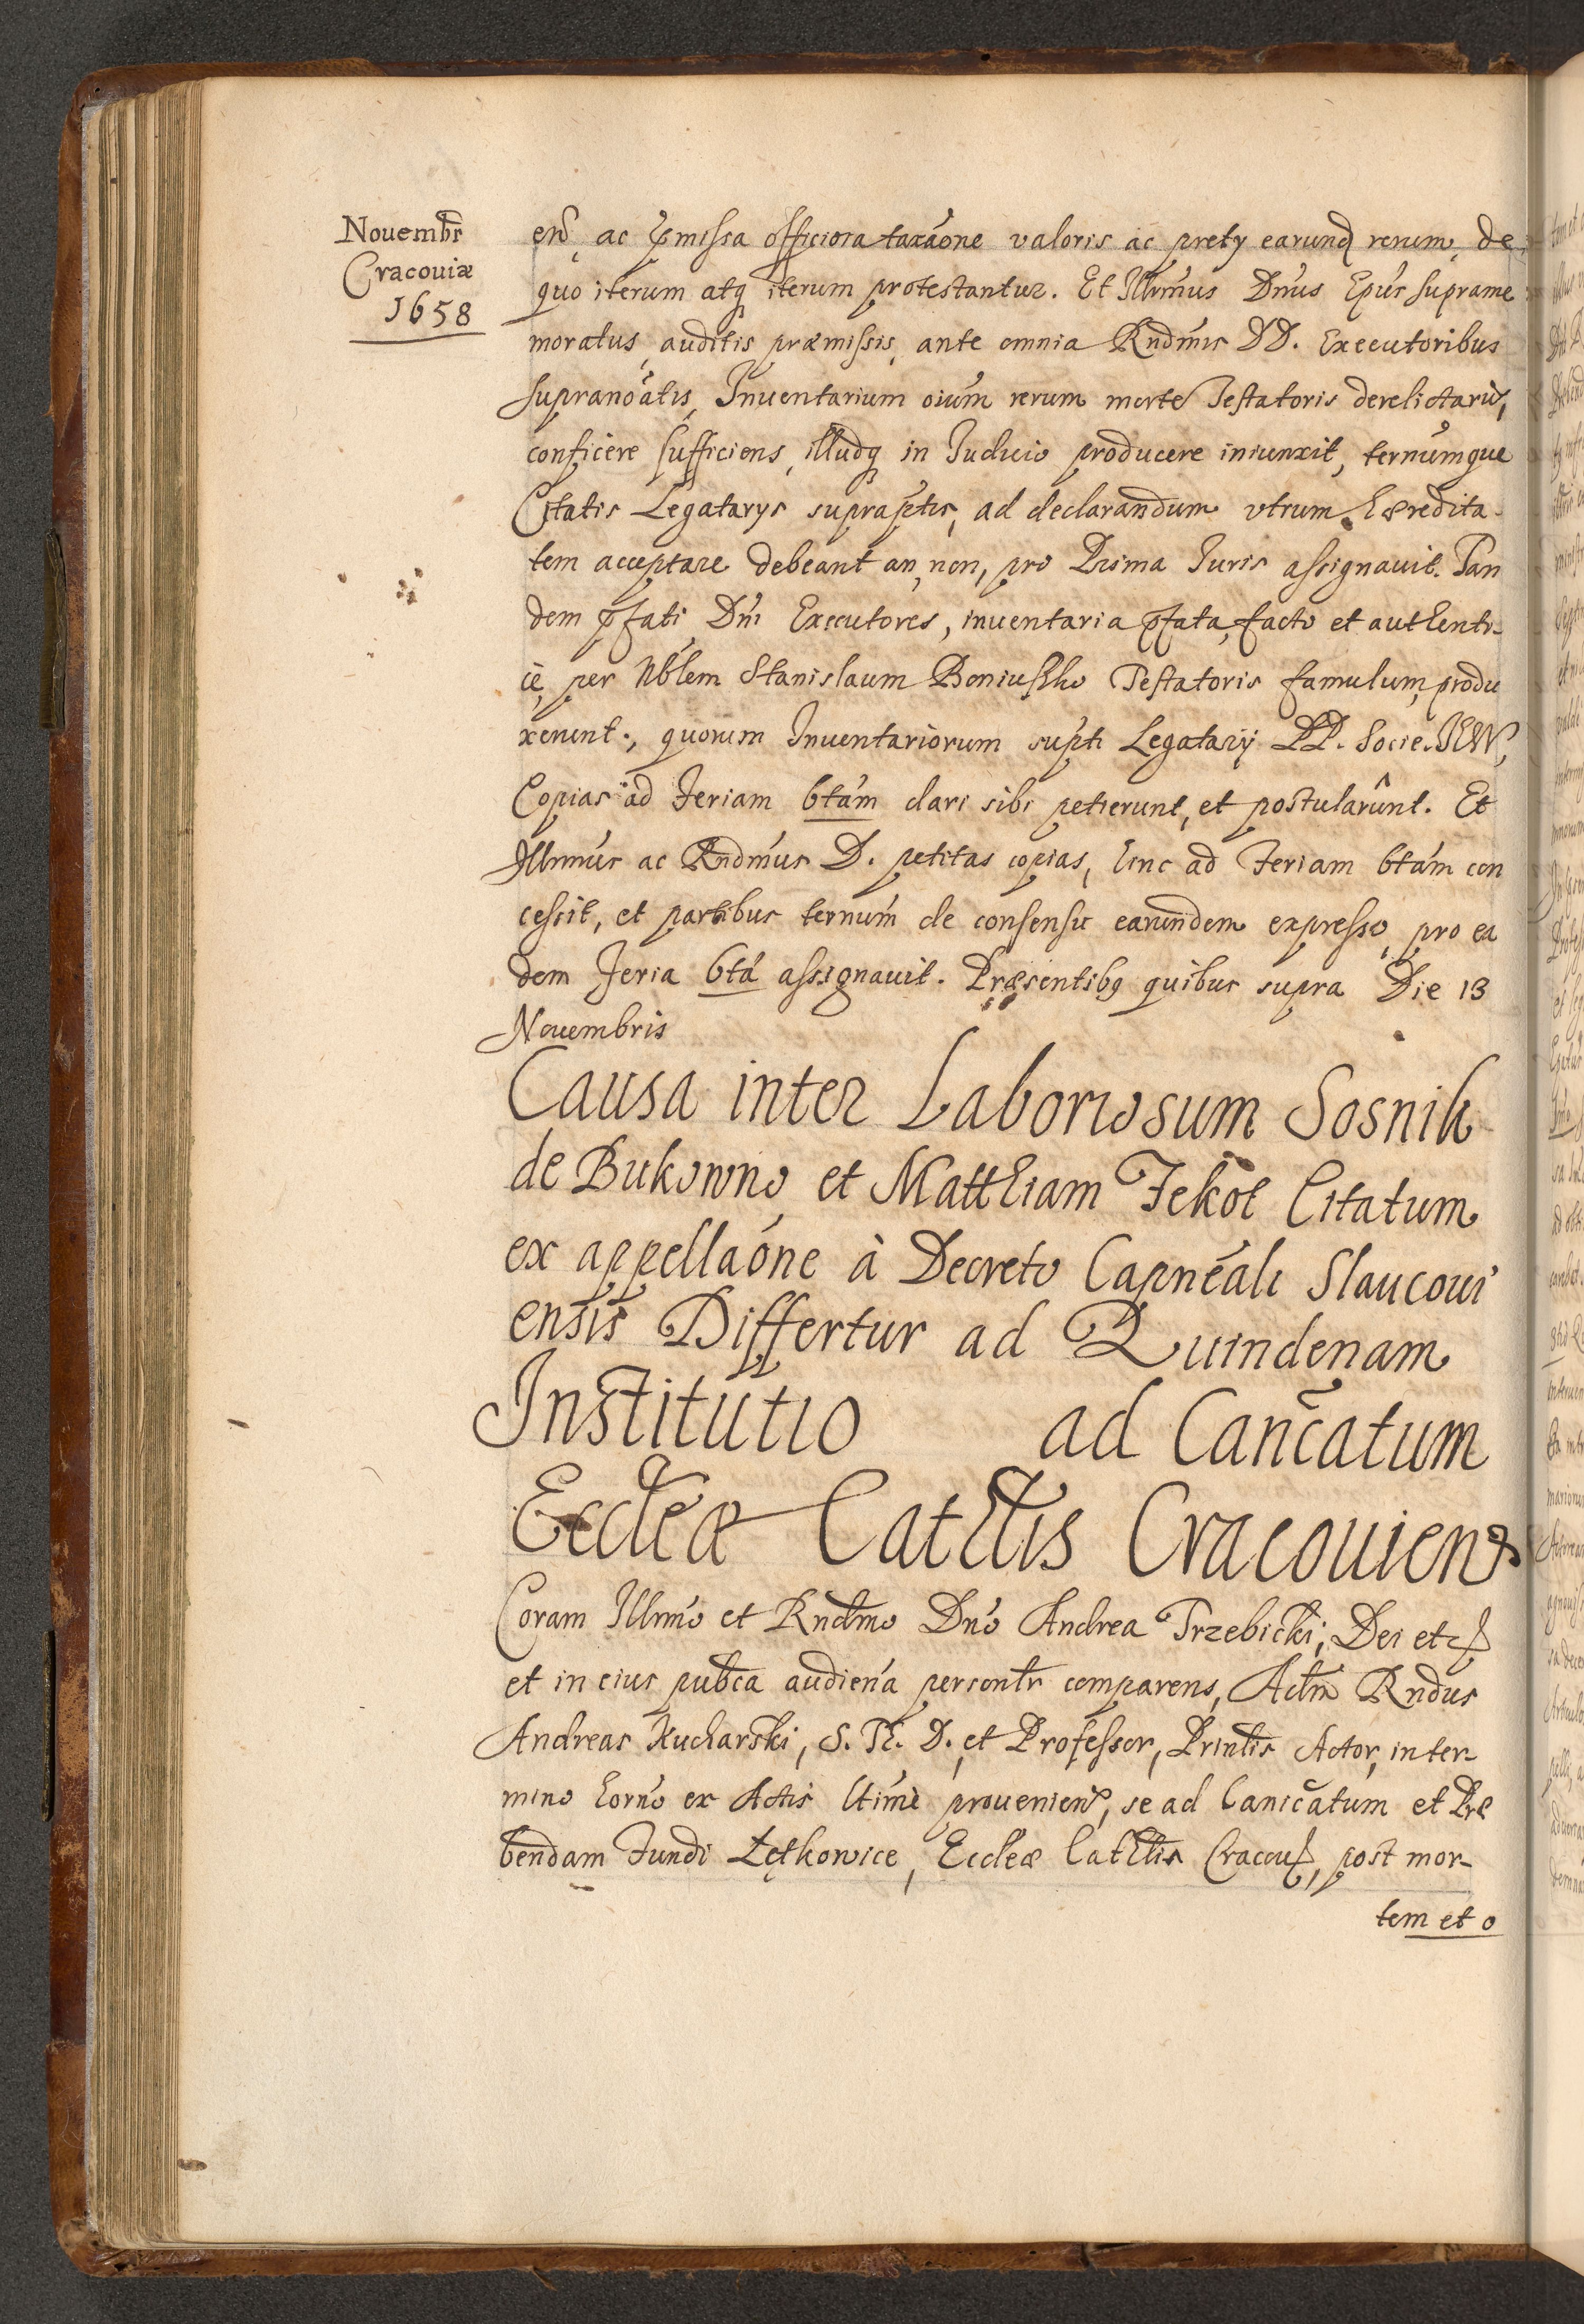 Nouembr
Cracouiæ
1658
ac pmissa officiosa taxaóne valoris ac prety earund rerum, de
quo iterum atq iterum protestantur. Et Illrmus Dnus Epus suprame
moratus, auditis præmissis, ante omnia Rndmis DD. Executoribus
supranoátis, Inuentarium oium rerum morte Testatoris derelictarū,
conficere sufficiens, illudq in Iudicio producere iniunxit, ternumque
Citatis Legatarys supraptis, ad declarandum vtrum hæredita
tem acceptare debeant an non, pro Prima Iuris assignauit. Tan
dem pfati Dni Executores, inuentaria pfata, facto et authenti-
ce, per Nblem Stanislaum Boniushko Testatoris famulum, produ
xerunt., quorum Inuentariorum supti Legatarij PP. Socie. IESV,
Copias ad feriam 6tam dari sibi petierunt, et postularunt. Et
Illrmus ac Rndmus D. petitas copias, hinc ad feriam 6tam con
cessit, et partibus ternum de consensu earundem expresso, pro ea
dem feria 6ta assignauit. Præsentibq quibus supra Die 13
Nouembris
Causa inter Laboriosum Sosnik
de Bukowno et Matthiam Fekot Citatum
ex appellaóne à Decreto Capneáli Slaucoui
ensis Differtur ad Quindenam
Institutio ad Cancatum
Eccleæ Cathlis Cracouien
Coram Illrmo et Rndmo Dno Andrea Trzebicki, Dei et
et in eius pubca audiena personlr comparens, Adm Rndus
Andreas Kucharski, S. Th. D. et Professor, Printis Actor, in ter-
mino horno ex Actis ltimè prouenien, se ad Canicatum et Præ
bendam fundi Łętkowice, Eccleæ Cathlis Cracou, post mor-
tem et o